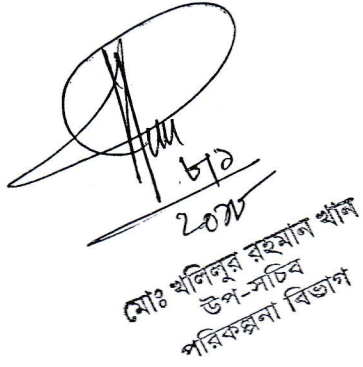 ৮/১
২০১৮
মোঃ খলিলুর রহমান খান
উপ-সচিব
পরিকল্পনা বিভাগ